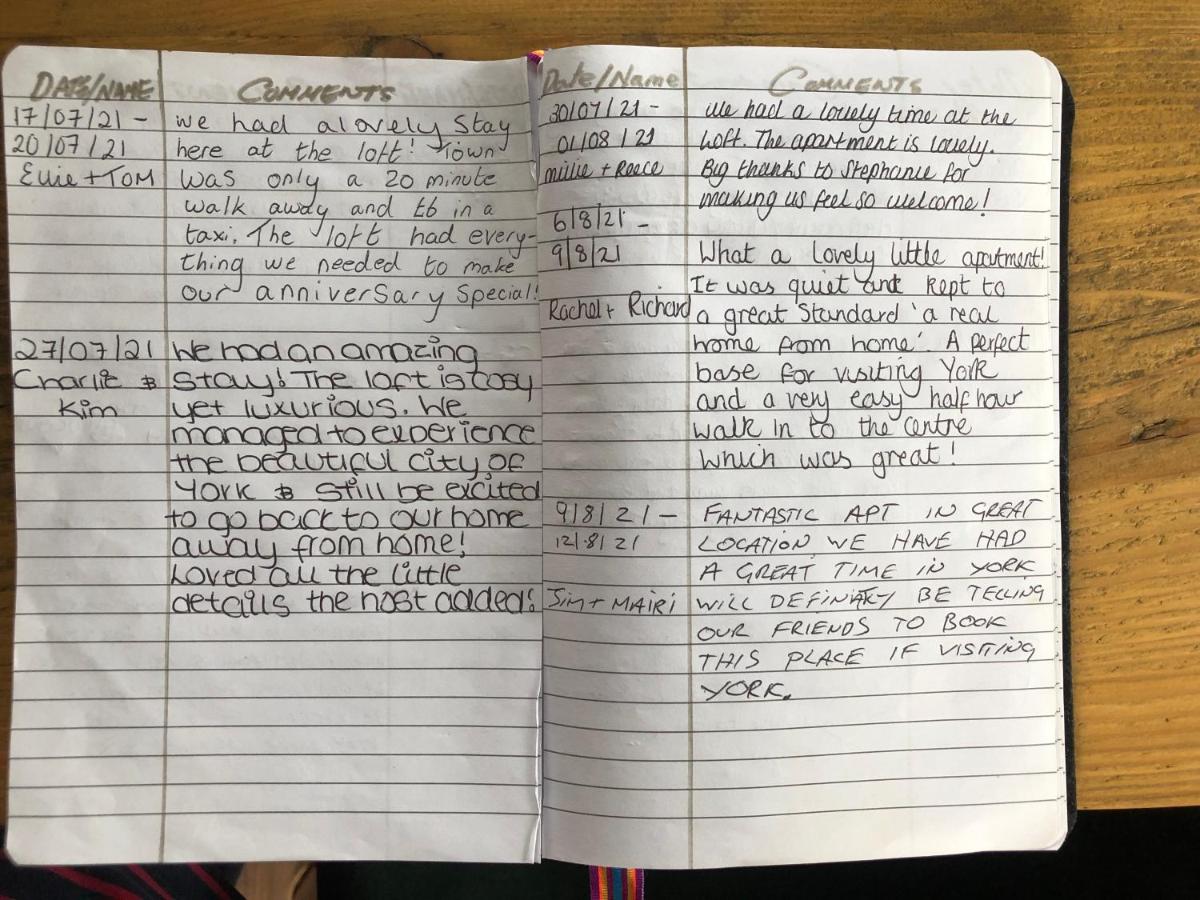 DATE/NAME COMMENTS
17/07/21 - we had a lovely stay
20/07/21 here at the loft! Town
Ellie + TOM was only a 20 minute
walk away and £6 in a
taxi. The loft had every-
thing we needed to make
our anniversary special!
27/07/21 We had an amazing
Charlie & stay! The loft is cosy
Kim yet luxurious. We
managed to experience
the beautiful city of
York & still be excited
to go back to our home
away from home!
Loved all the little
details the host added!
Date/Name COMMENTS
30/07/21 - We had a lovely time at the
01/08/21 Loft. The apartment is lovely.
millie + Reece Big thanks to Stephanie for
making us feel so welcome!
6/8/21 -
9/8/21 What a lovely little apartment!
It was quiet and kept to
Rachel + Richard a great standard 'a real
home from home'. A perfect
base for visiting York
and a very easy half hour
walk in to the centre
which was great!
9/8/21 - FANTASTIC APT IN GREAT
12/8/21 LOCATION WE HAVE HAD
A GREAT TIME IN YORK
Jim + MAIRI WILL DEFINATLY BE TELLING
OUR FRIENDS TO BOOK
THIS PLACE IF VISITING
YORK.